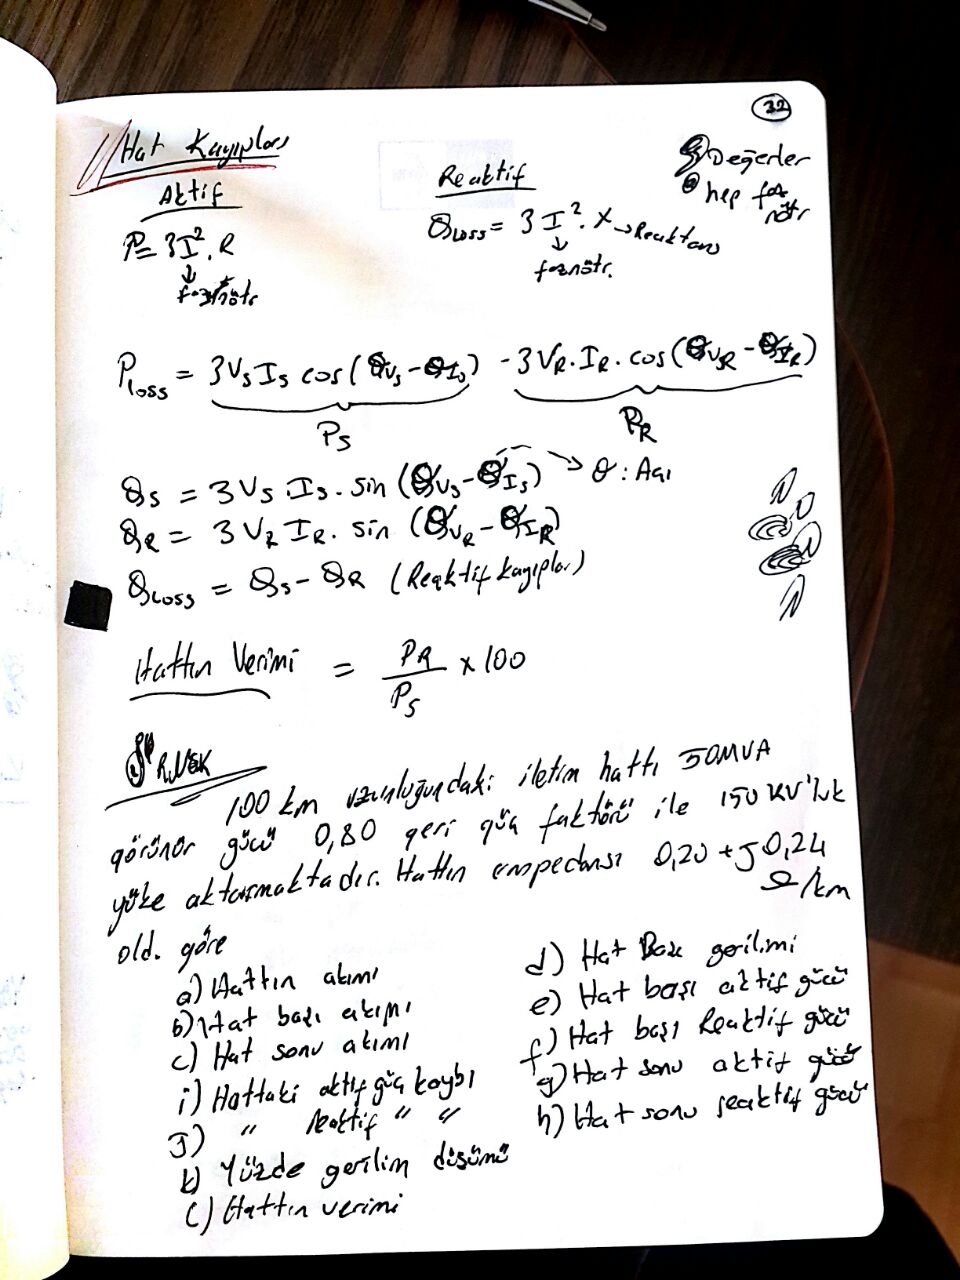 32
Hat Kayıpları
Aktif
P = 3I². R
faz nötr
Reaktif
Qloss = 3 I². X → Reaktans
faznötr.
Değerler
hep faz
nötr
Ploss = 3VsIs cos(θVs - θIs) - 3VR.IR.cos(θVR - θIR)
Ps
PR
Qs = 3Vs.Is.sin(θVs - θIs) → θ : Açı
QR = 3VR IR. sin (θVR - θIR)
Qloss = Qs - QR (Reaktif kayıplar)
Hattın Verimi = PR / Ps x 100
ÖRNEK
100 km uzunluğundaki iletim hattı 50MVA
görünür gücü 0,80 geri güç faktörü ile 150 KV'luk
yüke aktarmaktadır. Hattın empedansı 0,20 + J 0,24
Ω/km
old. göre
a) Hattın akımı
b) Hat başı akımı
c) Hat sonu akımı
i) Hattaki aktif güç kaybı
J) " reaktif " "
k) Yüzde gerilim düşümü
l) Hattın verimi
d) Hat Başı gerilimi
e) Hat başı aktif gücü
f) Hat başı Reaktif gücü
g) Hat sonu aktif gücü
h) Hat sonu reaktif gücü